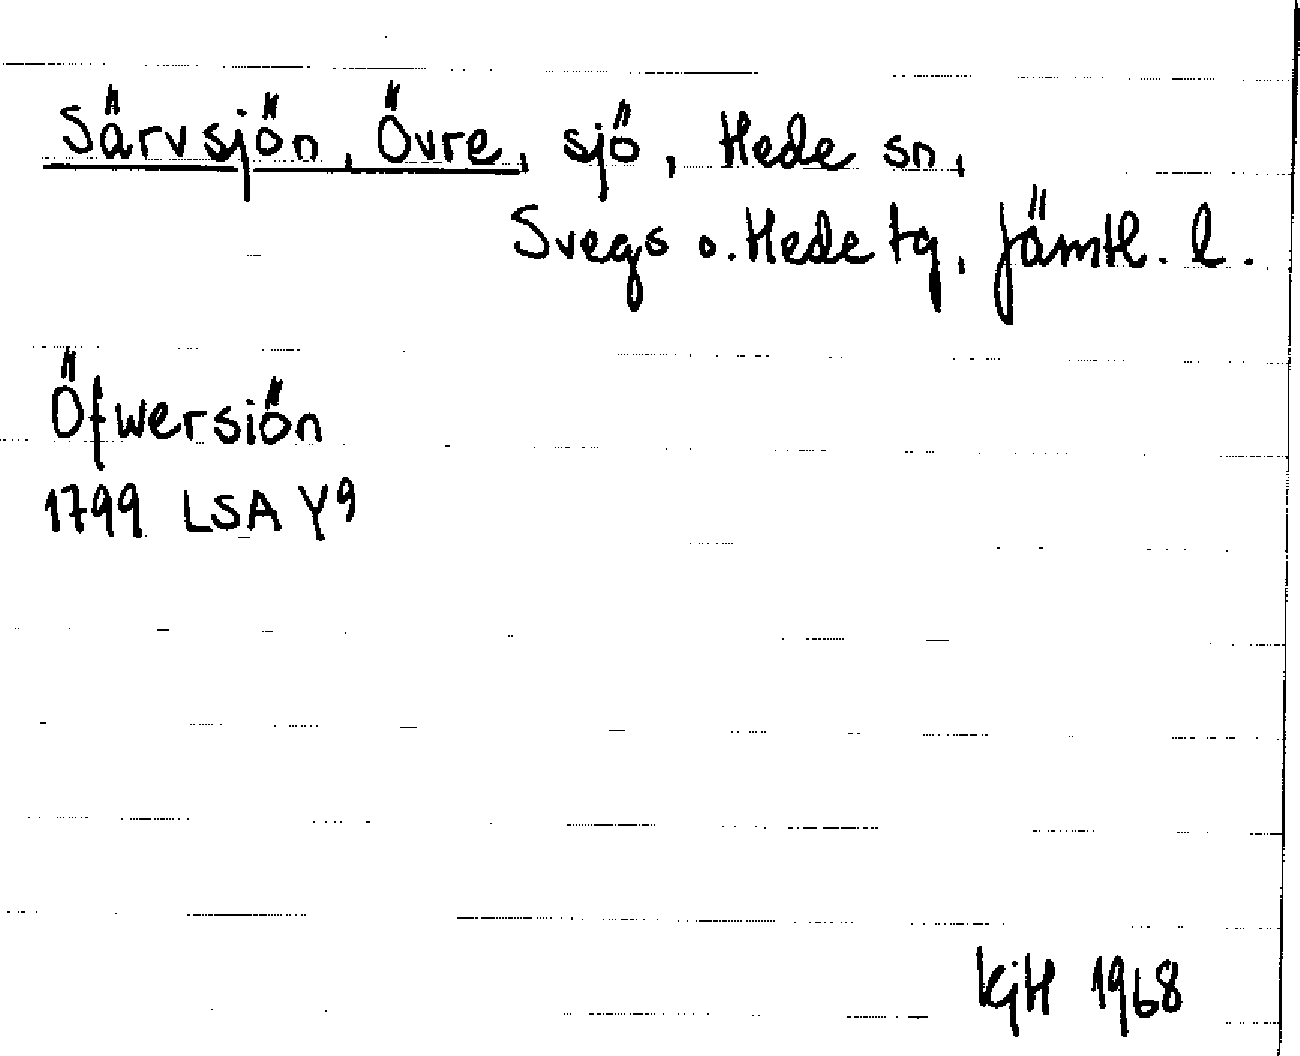 Särvsjön, Övre, sjö, Hede sn,
Svegs o. Hede tg, Jämtl. l.
Öfwersiön
1799 LSA Y9
KjH 1968